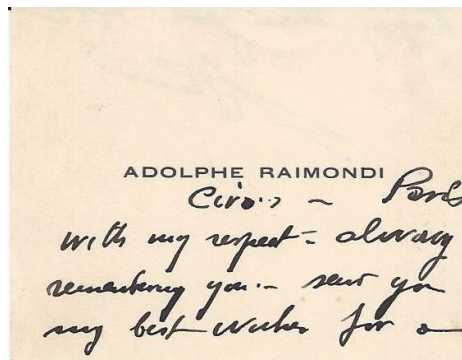 ADOLPHE RAIMONDI
Ciro's - Paris
with my respect - always
remembering you - send you
my best wishes for a